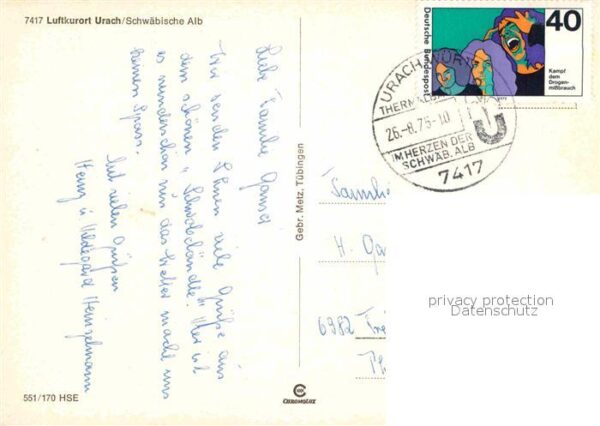 7417 Luftkurort Urach/Schwäbische Alb
Liebe Familie Ganser
Wir senden Ihnen viele Grüße aus
dem schönen „Schwabeländle". Hier ist
es wunderschön nur das Wetter macht uns
keinen Spass.
Mit vielen Grüßen
Heinz u Hildegard Heinzelmann
551/170 HSE
Gebr. Metz, Tübingen
CHROMOLUX
Deutsche Bundespost
40
Kampf
dem
Drogen-
mißbrauch
URACH WÜRTT
THERMALBAD
26.-8.75-10
IM HERZEN DER
SCHWÄB. ALB
7417
Familie
H. Gan
6982 Frei
privacy protection
Datenschutz